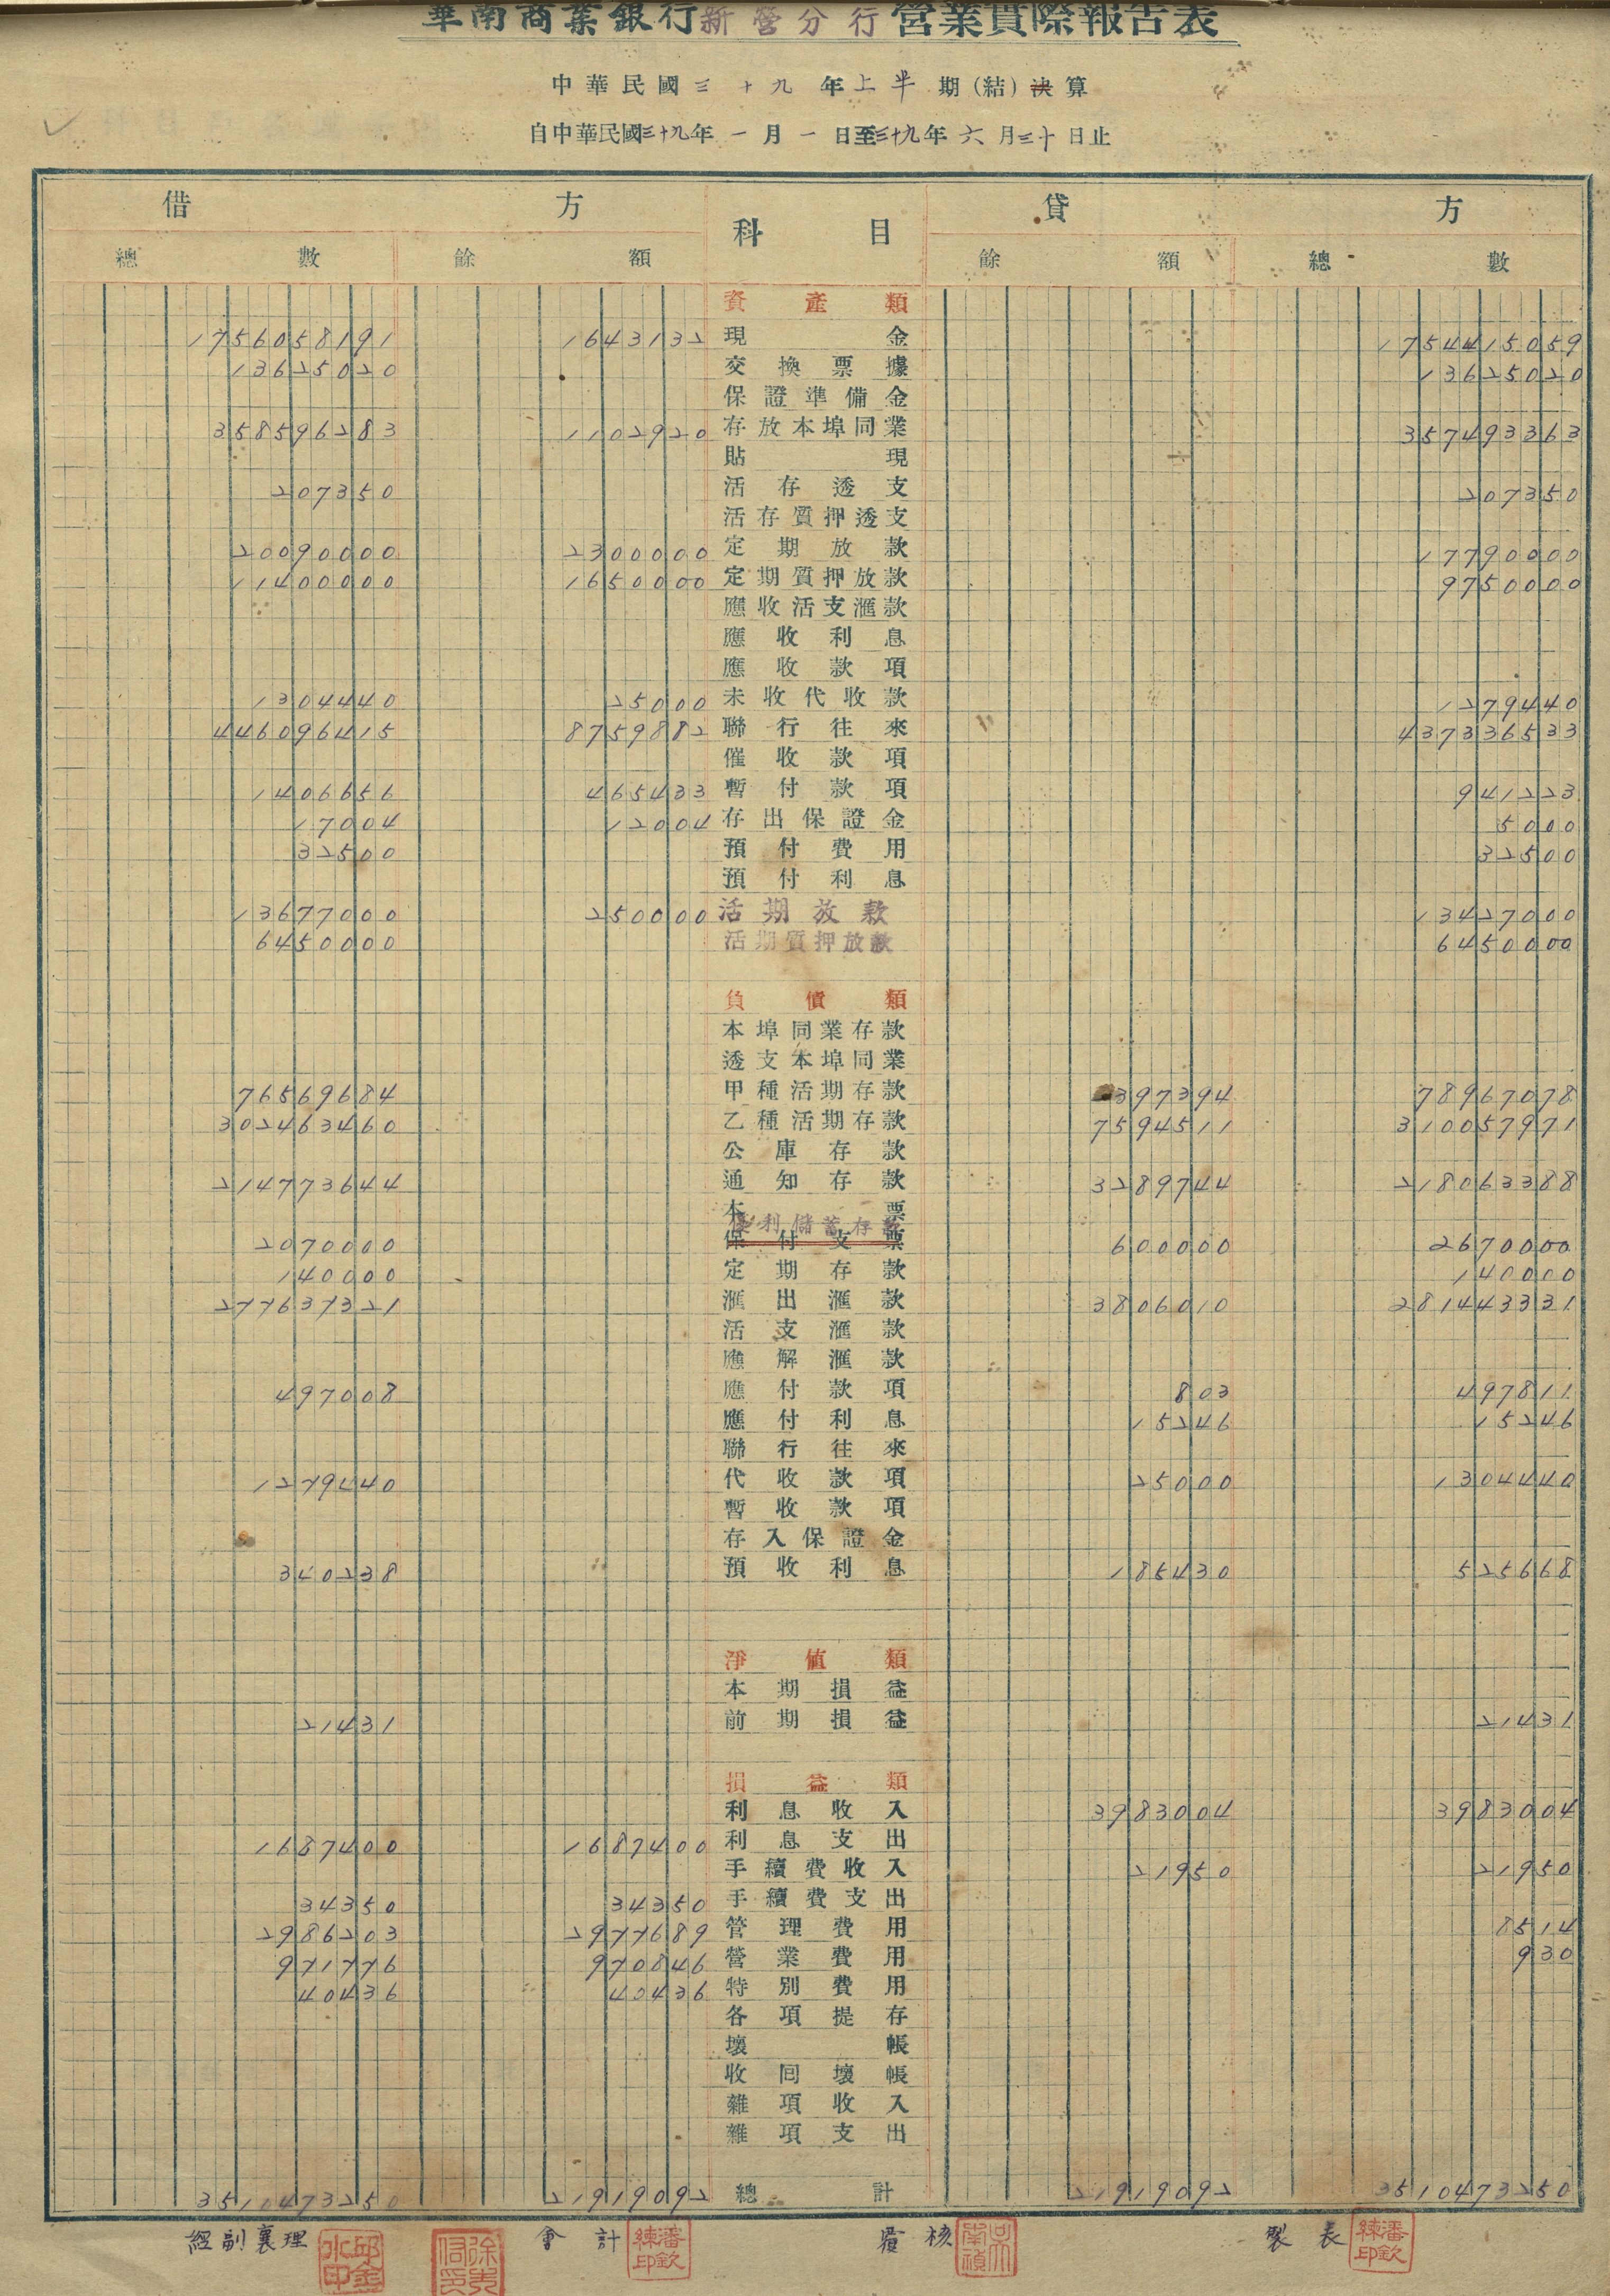 華南商業銀行新營分行營業實際報告表
中華民國三十九年上半期(結)決算
自中華民國三十九年一月一日至三十九年六月三十日止
借 方 科 目 貸 方
總 數 餘 額 餘 額 總 數
資產類
1756058191 1643132 現金 1754415059
13625020 交換票據 13625020
保證準備金
358596283 1102920 存放本埠同業 357493363
貼現
207350 活存透支 207350
活存質押透支
20090000 2300000 定期放款 17790000
11400000 1650000 定期質押放款 9750000
應收活支滙款
應收利息
應收款項
1304440 25000 未收代收款 1279440
446096415 8759882 聯行往來 437336533
催收款項
1406656 465433 暫付款項 941223
17004 12004 存出保證金 5000
32500 預付費用 32500
預付利息
13677000 250000 活期放款 13427000
6450000 活期質押放款 6450000
負債類
本埠同業存款
透支本埠同業
76569684 甲種活期存款 2397394 78967078
302463460 乙種活期存款 7594511 310057971
公庫存款
214773644 通知存款 3289744 218063388
本票
優利儲蓄存款
2070000 保付支票 600000 2670000
140000 定期存款 140000
277637321 滙出滙款 3806010 281443331
活支滙款
應解滙款
497008 應付款項 803 497811
應付利息 15246 15246
聯行往來
1279440 代收款項 25000 1304440
暫收款項
存入保證金
340238 預收利息 185430 525668
淨值類
本期損益
21431 前期損益 21431
損益類
利息收入 3983004 3983004
1687400 1687400 利息支出
手續費收入 21950 21950
34350 34350 手續費支出
2986203 2977689 管理費用 8514
971776 970846 營業費用 930
40436 40436 特別費用
各項提存
壞帳
收回壞帳
雜項收入
雜項支出
3510473250 21919092 總計 21919092 3510473250
經副襄理 會計 潘欽練印 覆核 製表 潘欽練印